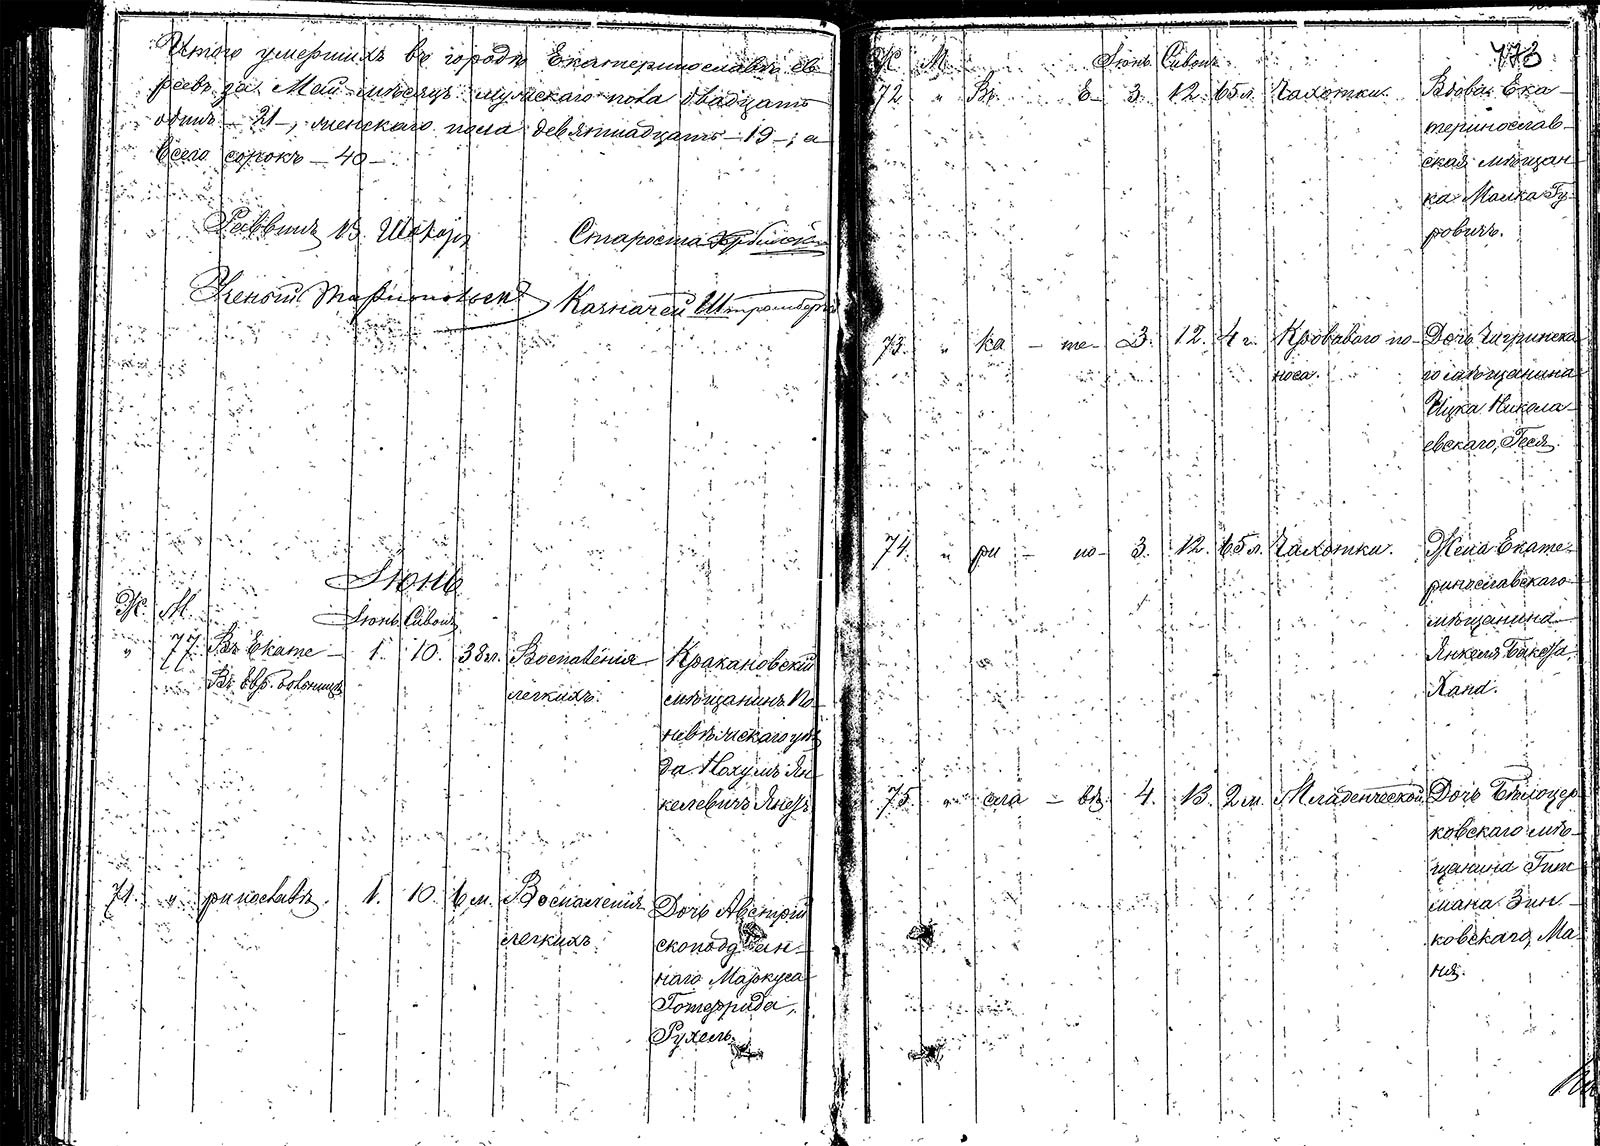 Итого умершихъ въ городѣ Екатеринославѣ ев-
реевъ за Май мѣсяцъ мужскаго пола двадцать
одинъ - 21 -, женскаго пола девятнадцать - 19 -; а
всего сорокъ - 40 -
Раввинъ В. Шахоръ
Староста
Ученый
Казначей Штромбергъ
Іюнь
Ж. М.
Іюнь Сивонъ
" 77. Въ Екате- 1. 10. 38 л. Воспаленія Кракановскій
Въ Евр. больницѣ легкихъ. мѣщанинъ По-
невѣжскаго уѣз
да Нохумъ Ян-
келевичъ
71. " ринославѣ. 1. 10. 6 м. Воспаленія Дочь Австрій
легкихъ. скоподдан-
наго Маркуса
Готфрида,
Рухель.
773
Ж М Іюнь Сивонъ
72 " Въ Е- 3. 12. 65 л. Чахотки. Вдова Ека-
теринослав-
ская мѣщан-
ка Малка Гу-
ровичъ.
73. " ка - те- 3. 12. 4 г. Кроваваго по- Дочь Чигринска-
носа. го мѣщанина
Ицка Никола-
евскаго, Геся.
74. " ри - но- 3. 12. 65 л. Чахотки. Жена Екате-
ринославскаго
мѣщанина
Янкеля
Хана.
75. " сла - вѣ 4. 13. 2 м. Младенческой Дочь Бѣлоцер
ковскаго мѣ-
щанина Гит
мана Зин-
ковскаго, Ма-
ня.